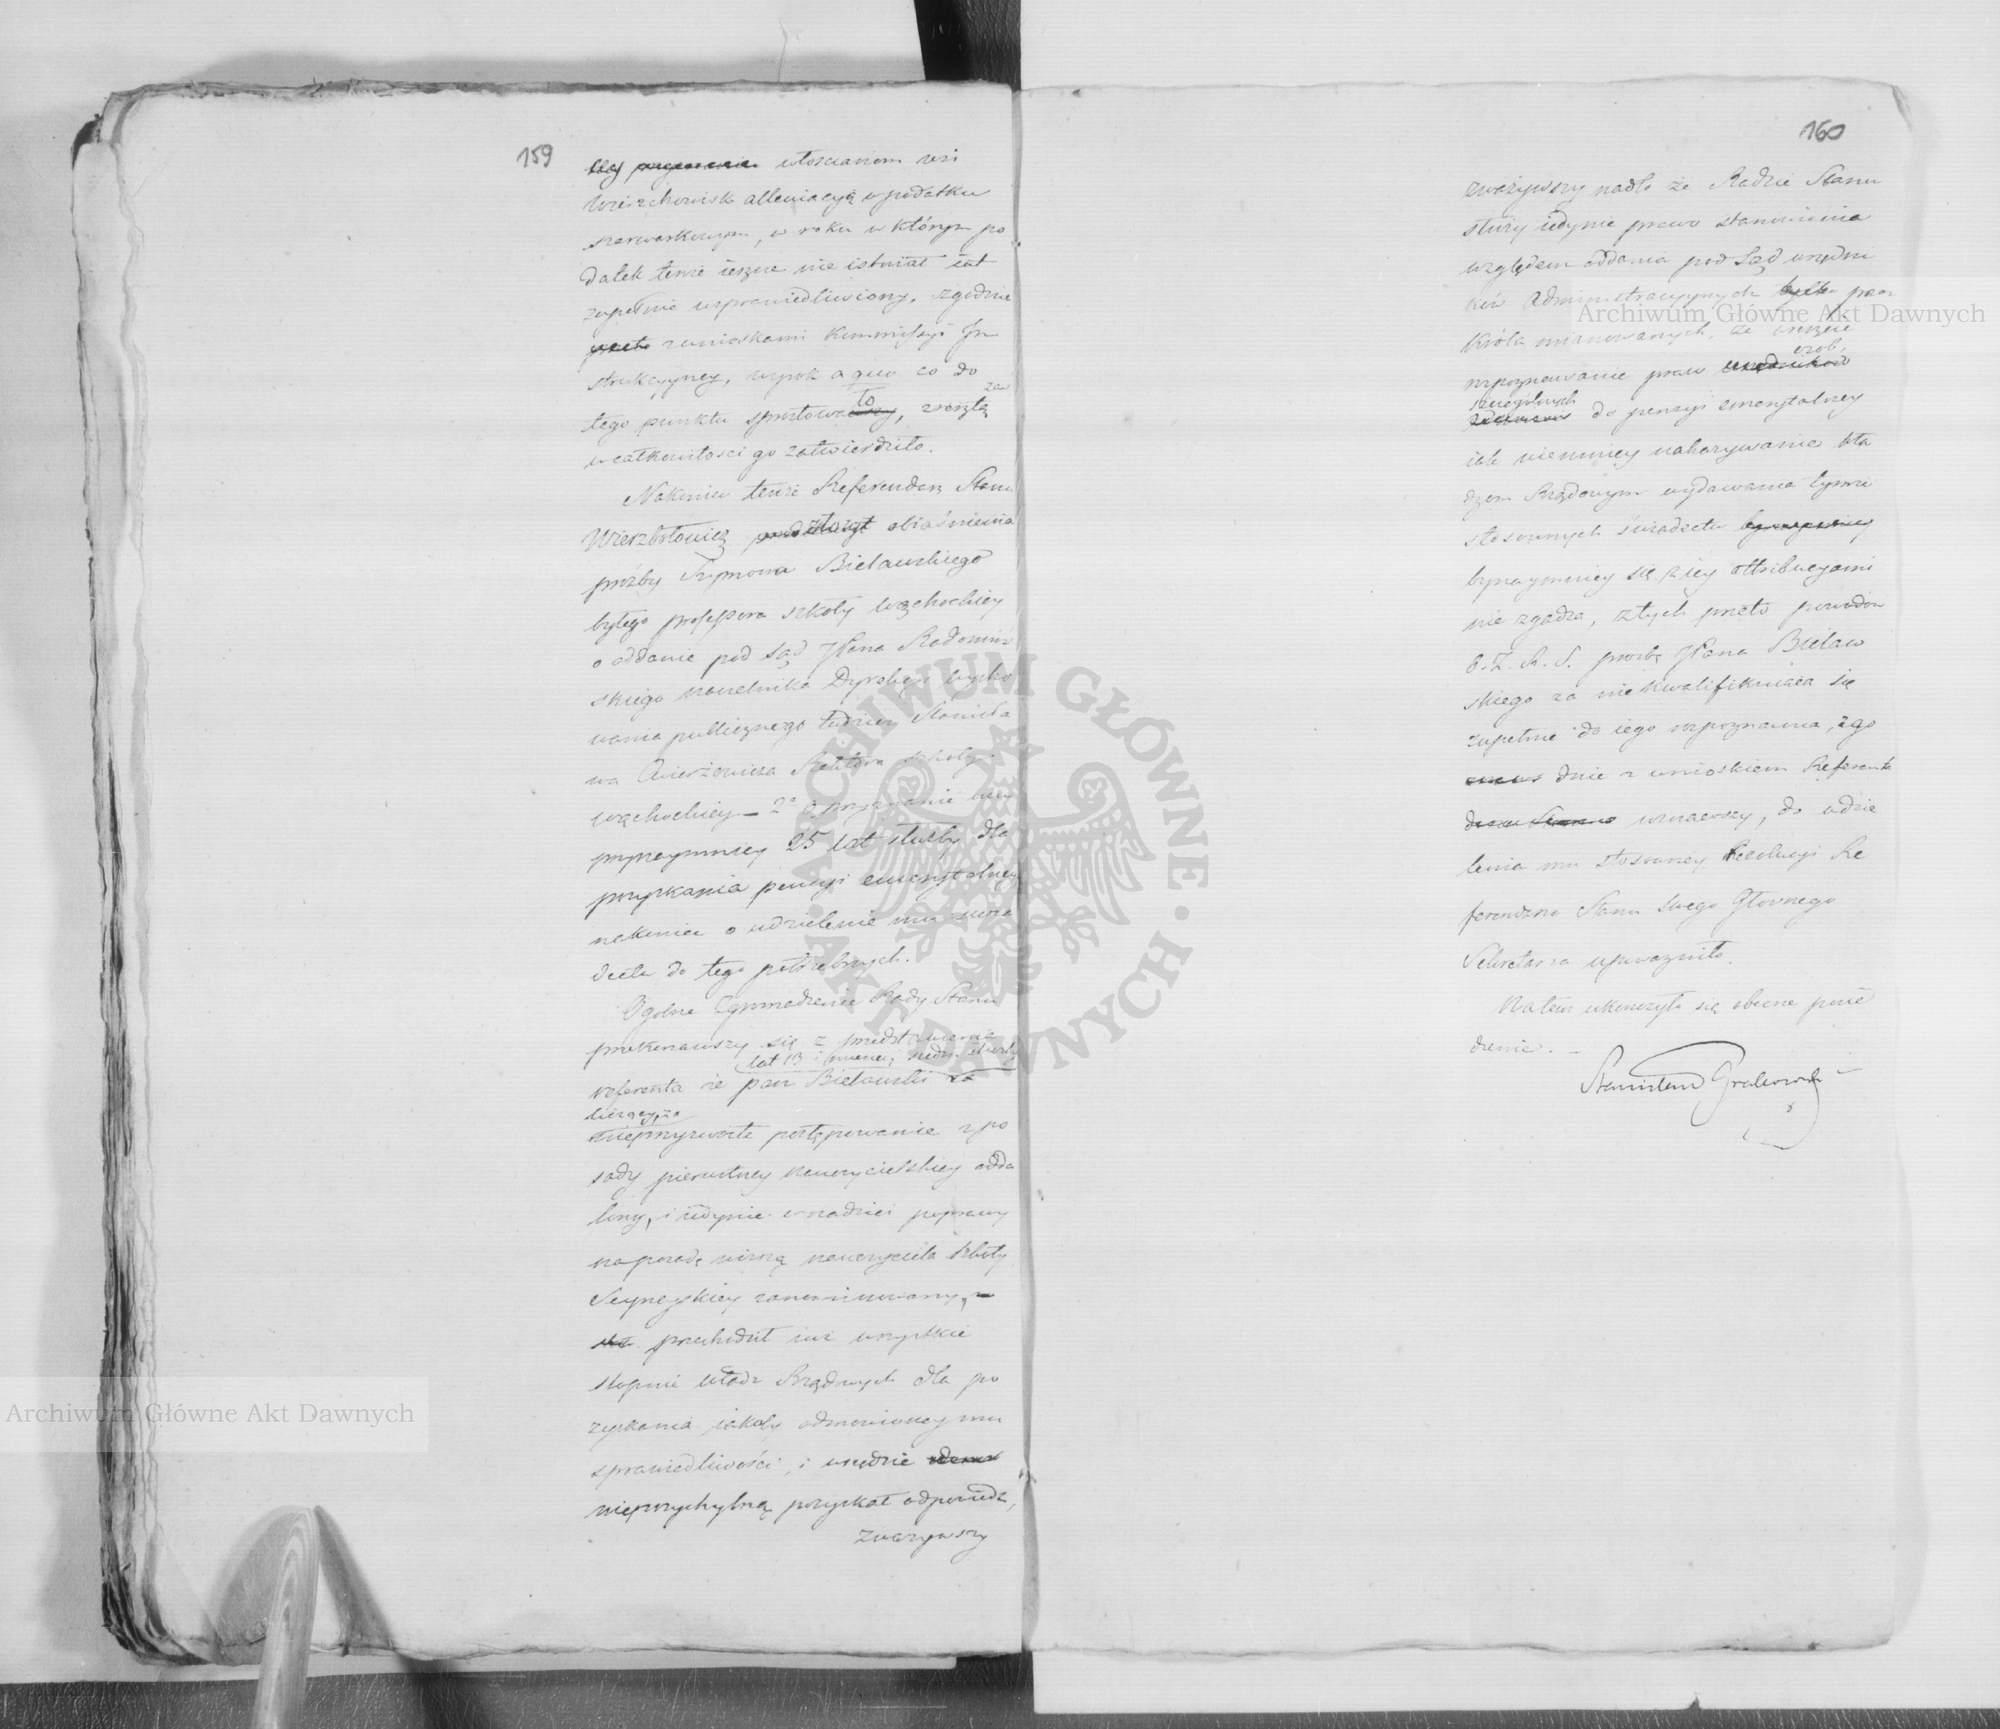 159
włoscianom wsi
Wierzchowisk allewiacyą w podatku
szarwarkowym, w roku w którym po
datek tenże ieszcze nie istniał iest
zupełnie usprawiedliwiony, zgodnie
z wnioskami Kommissyi In
strukcyyney, wyrok a quo co do
tego punktu sprostowa to, zresztą zaś
w całkowitości go zatwierdziło.
Nakoniec tenże Referendarz Stanu
Wierzbołowicz złożył obiaśnienia
prozby Szymona Bielawskiego
byłego professora szkoły wąchockiey
o oddanie pod Sąd JPana Radomin
skiego naczelnika Dyrekcyi wycho
wania publicznego tudzież Stanisła
wa Rektora szkoły
wąchockiey – 2º o przyznanie mu
przynaymniey 25 lat służby dla
pozyskania pensyi emerytalney
nakoniec o udzielenie mu swia
dectw do tego potrzebnych.
Ogólne Zgromadzenie Rady Stanu
przekonawszy się z przedstawienia
lat 13 i służby
referenta że pan Bielawski
liczący, za
nieprzyzwoite postępowanie z po
sady pierwotney nauczycielskiey odda
lony, i iedynie w nadziei poprawy
na posadę niższą nauczyciela szkoły
Seyneyskiey zanominowany,
przechodził iuż wszystkie
stopnie władz Rządowych dla po
zyskania iakoby odmówioney mu
sprawiedliwości, i wszędzie
nieprzychylną pozyskał odpowiedź,
zważywszy
160
zważywszy nadto że Radzie Stanu
służy iedynie prawo stanowienia
względem oddania pod Sąd urzędni
ków administracyynych przez
Króla mianowanych, że wreszcie
osób,
rozpoznawanie praw urzędników
szczególnych
do pensyi emerytalney
iak niemniey nakazywanie wła
dzom Rządowym wydawania tymże
stosownych świadectw
bynaymniey się z iey attribucyami
nie zgadza, z tych przeto powodów
O. Z. R. S. prozbę JPana Bielaw
skiego za niekwalifikuiącą się
zupełnie do iego rozpoznania, zgo
dnie z wnioskiem Referenta
uznawszy, do udzie
lenia mu stosowney Rezolucyi Re
ferendarza Stanu swego Głównego
Sekretarza upoważniło.
Na tem ukończyło się obecne posie
dzenie. –
Stanisław Grabowski
Archiwum Główne Akt Dawnych
Archiwum Główne Akt Dawnych
ARCHIWUM GŁÓWNE
AKT DAWNYCH